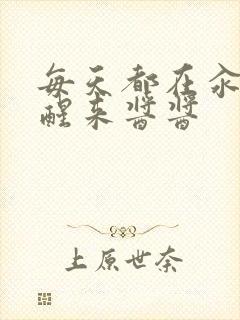 每天都在汆
醒来酱酱
上原世奈